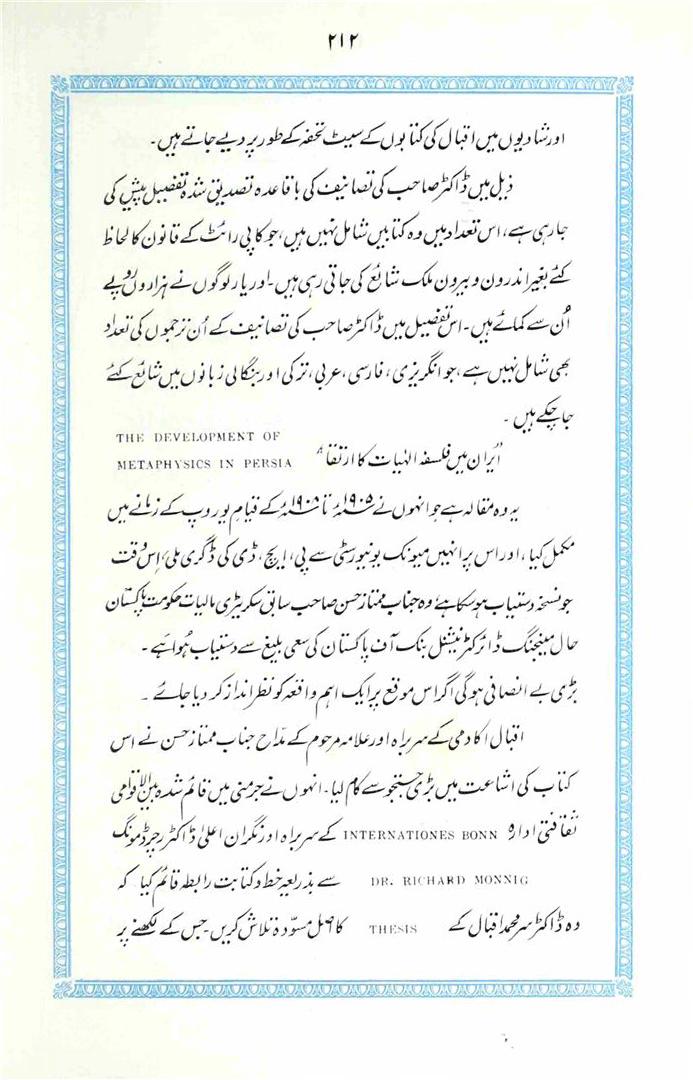 ۲۱۲
اور شادیوں میں اقبال کی کتابوں کے سیٹ تحفہ کے طور پر دیے جاتے ہیں۔
ذیل میں ڈاکٹر صاحب کی تصانیف کی باقاعدہ تصدیق شدہ تفصیل پیش کی
جا رہی ہے، اس تعداد میں وہ کتابیں شامل نہیں ہیں، جو کاپی رائٹ کے قانون کا لحاظ
کئے بغیر اندرون و بیرون ملک شائع کی جاتی رہی ہیں۔ اور یار لوگوں نے ہزاروں روپے
اُن سے کمائے ہیں۔ اس تفصیل میں ڈاکٹر صاحب کی تصانیف کے اُن ترجموں کی تعداد
بھی شامل نہیں ہے، جو انگریزی، فارسی، عربی، ترکی اور بنگالی زبانوں میں شائع کئے
جا چکے ہیں۔
THE DEVELOPMENT OF
"ایران میں فلسفہ الہٰیات کا ارتقا" METAPHYSICS IN PERSIA
یہ وہ مقالہ ہے جو انہوں نے ۱۹۰۵ء تا ۱۹۰۸ء کے قیام یوروپ کے زمانے میں
مکمل کیا، اور اس پر انہیں میونک یونیورسٹی سے پی، ایچ، ڈی کی ڈگری ملی، اس وقت
جو نسخہ دستیاب ہو سکا ہے وہ جناب ممتاز حسن صاحب سابق سکریٹری مالیات حکومت پاکستان
حال مینیجنگ ڈائرکٹر نیشنل بنک آف پاکستان کی سعی بلیغ سے دستیاب ہُوا ہے۔
بڑی بے انصافی ہوگی اگر اس موقع پر ایک اہم واقعہ کو نظر انداز کر دیا جائے۔
اقبال اکادمی کے سربراہ اور علامہ مرحوم کے مدّاح جناب ممتاز حسن نے اس
کتاب کی اشاعت میں بڑی جستجو سے کام لیا۔ انہوں نے جرمنی میں قائم شدہ بین الاقوامی
ثقافتی ادارہ INTERNATIONES BONN کے سربراہ اور نگران اعلیٰ ڈاکٹر رچرڈ مونگ
DR. RICHARD MONNIG سے بذریعہ خط و کتابت رابطہ قائم کیا کہ
وہ ڈاکٹر سر محمد اقبال کے THESIS کا اصل مسوّدہ تلاش کریں۔ جس کے لکھنے پر